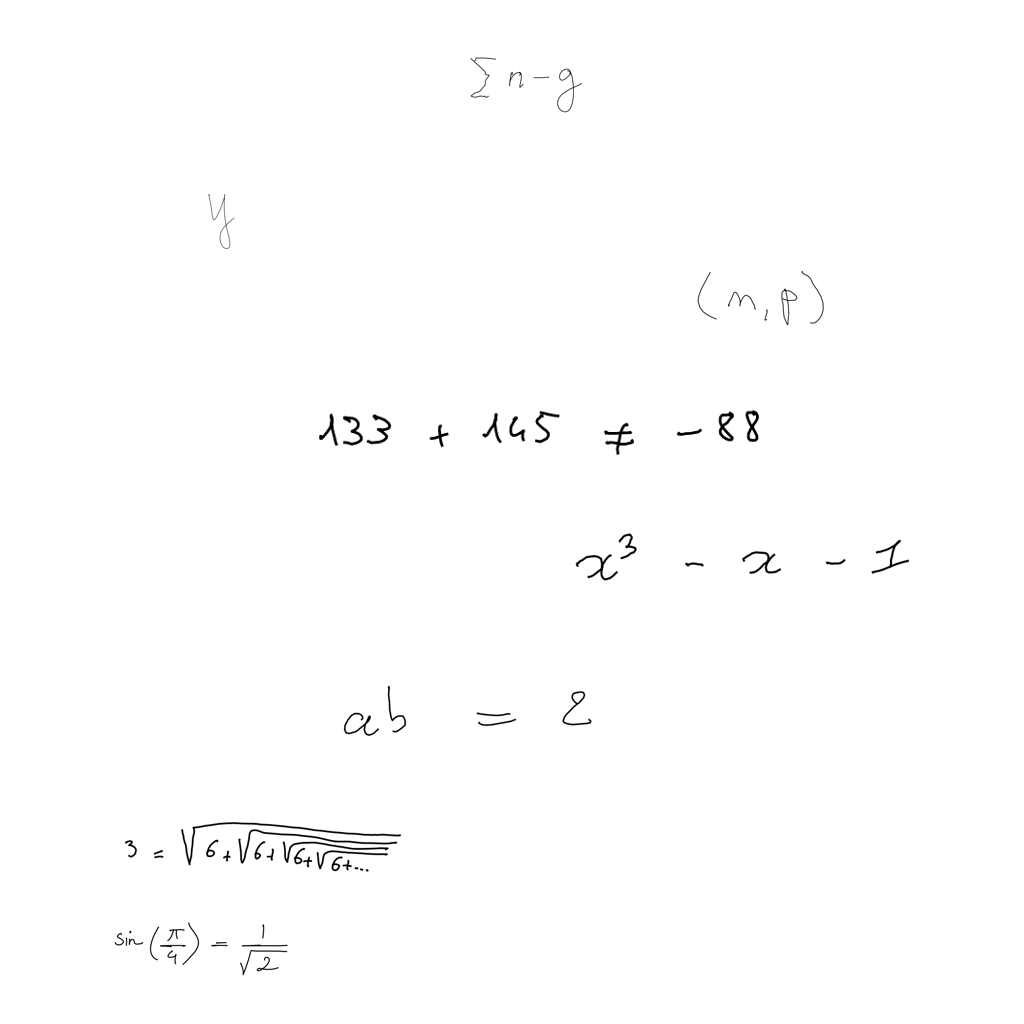 ∑ n - g
y
(n, p)
133 + 145 ≠ -88
x³ - x - 1
ab = 2
3 = √(6+√(6+√(6+√(6+...
sin(π/4) = 1/√2